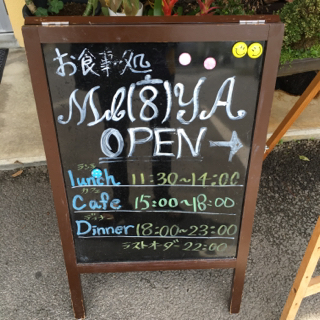 お食事処
(8)YA
OPEN →
ランチ
lunch 11:30~14:00
カフェ
Cafe 15:00~18:00
ディナー
Dinner 18:00~23:00
ラストオーダー 22:00